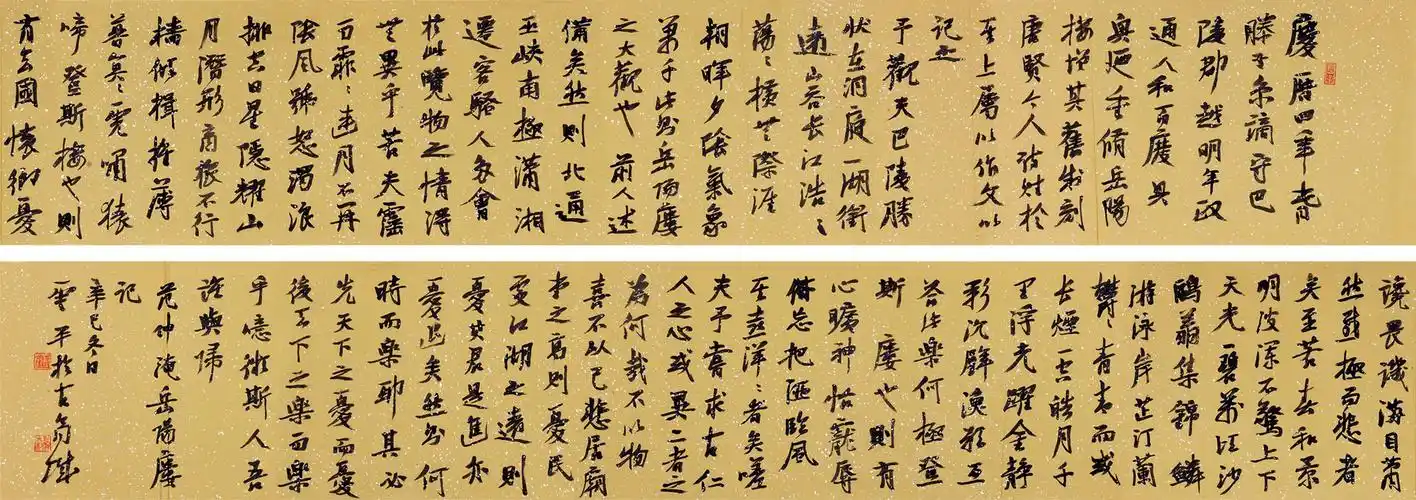 慶曆四年春
滕子京謫守巴
陵郡越明年政
通人和百廢具
興廼重脩岳陽
樓增其舊制刻
唐賢今人詩賦於
其上屬以作文以
記之
予觀夫巴陵勝
狀在洞庭一湖銜
遠山吞長江浩〻
蕩〻橫無際涯
朝暉夕陰氣象
萬千此則岳陽樓
之大觀也前人述
備矣然則北通
巫峽南極瀟湘
遷客騷人多會
於此覽物之情得
無異乎若夫霪
雨霏〻連月不開
陰風號怒濁浪
排空日星隱耀山
月潛形商旅不行
檣傾楫摧薄
暮冥〻虎嘯猿
啼登斯樓也則
有去國懷鄉憂
讒畏譏滿目蕭
然感極而悲者
矣至若春和景
明波瀾不驚上下
天光一碧萬頃沙
鷗翔集錦鱗
游泳岸芷汀蘭
鬱〻青青而或
長煙一空皓月千
里浮光躍金靜
影沉璧漁歌互
答此樂何極登
斯樓也則有
心曠神怡寵辱
偕忘把酒臨風
其喜洋〻者矣嗟
夫予嘗求古仁
人之心或異二者之
為何哉不以物
喜不以己悲居廟
堂之高則憂民
處江湖之遠則
憂其君是進亦
憂退矣然則何
時而樂耶其必
先天下之憂而憂
後天下之樂而樂
乎噫微斯人吾
誰與歸
范仲淹岳陽樓
記
辛巳冬日
雲平於古